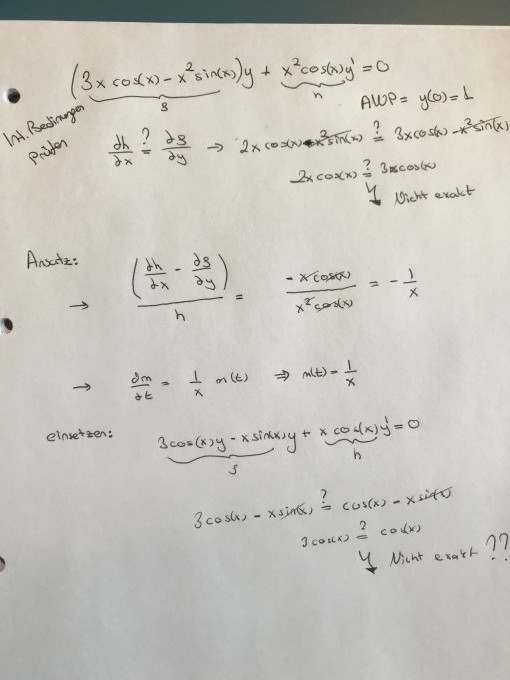 (3x cos(x) - x² sin(x)) y + x² cos(x) y' = 0
g h
AWP = y(0) = 1
Int. Bedingungen
Prüfen
∂h/∂x ?= ∂g/∂y → 2x cos(x) - x² sin(x) ?= 3x cos(x) - x² sin(x)
2x cos(x) ?= 3x cos(x)
↯ Nicht exakt
Ansatz:
→ (∂h/∂x - ∂g/∂y) / h = -x cos(x) / x² cos(x) = - 1/x
→ ∂m/∂t = 1/x m(t) ⇒ m(t) = 1/x
einsetzen:
3 cos(x) y - x sin(x) y + x cos(x) y' = 0
g h
3 cos(x) - x sin(x) ?= cos(x) - x sin(x)
3 cos(x) ?= cos(x)
↯ Nicht exakt ??